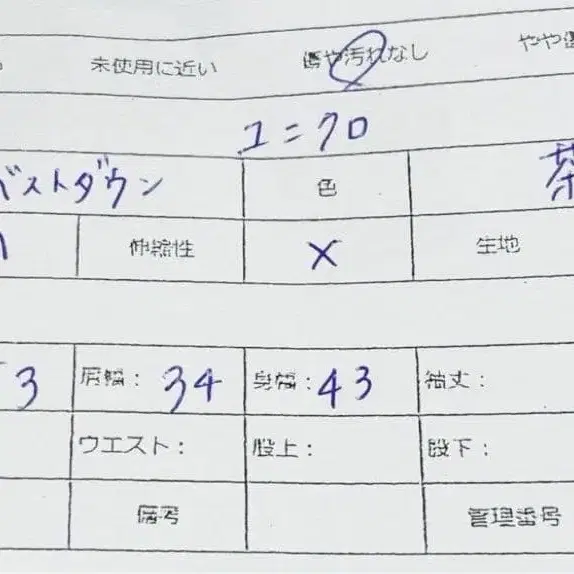 未使用に近い 傷や汚れなし やや
ユニクロ
ベストダウン 色 茶
伸縮性 × 生地
3 肩幅: 34 身幅: 43 袖丈:
ウエスト: 股上: 股下:
備考 管理番号